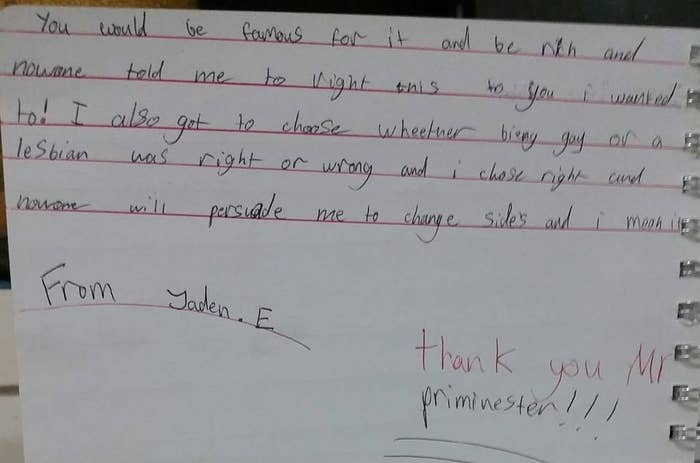 You would be famous for it and be rich and
nowone told me to right this to you i wanted
to! I also got to choose wheether bieng gay or a
lesbian was right or wrong and i chose right and
nowone will persuade me to change sides and i mean it
From Jaden. E
thank you Mr
priminester!!!